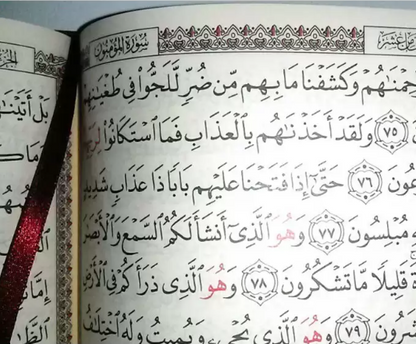 سُورَةُ الْمُؤْمِنُونَ
وَكَشَفْنَا مَا بِهِم مِّن ضُرٍّ لَّلَجُّوا۟ فِى طُغْيَـٰنِهِمْ
﴿٧٥﴾ وَلَقَدْ أَخَذْنَـٰهُم بِٱلْعَذَابِ فَمَا ٱسْتَكَانُوا۟ لِرَبِّهِمْ
﴿٧٦﴾ حَتَّىٰٓ إِذَا فَتَحْنَا عَلَيْهِم بَابًا ذَا عَذَابٍ شَدِيدٍ
مُبْلِسُونَ ﴿٧٧﴾ وَهُوَ ٱلَّذِىٓ أَنشَأَ لَكُمُ ٱلسَّمْعَ وَٱلْأَبْصَـٰرَ
قَلِيلًا مَّا تَشْكُرُونَ ﴿٧٨﴾ وَهُوَ ٱلَّذِى ذَرَأَكُمْ فِى ٱلْأَرْضِ
﴿٧٩﴾ وَهُوَ ٱلَّذِى يُحْىِۦ وَيُمِيتُ وَلَهُ ٱخْتِلَـٰفُ
بَلْ أَتَيْنَـٰهُم